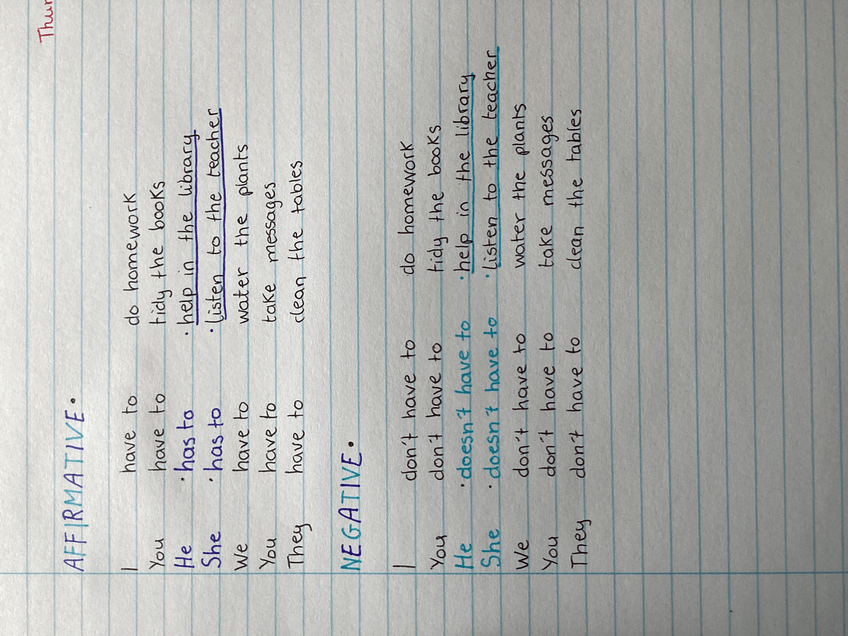 AFFIRMATIVE.
I have to do homework
You have to tidy the books
He · has to · help in the library
She · has to · listen to the teacher
We have to water the plants
You have to take messages
They have to clean the tables
NEGATIVE.
I don't have to do homework
You don't have to tidy the books
He · doesn't have to · help in the library
She · doesn't have to · listen to the teacher
We don't have to water the plants
You don't have to take messages
They don't have to clean the tables